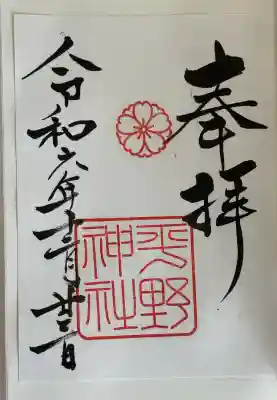 奉拝
平野神社
令和六年十一月廿三日